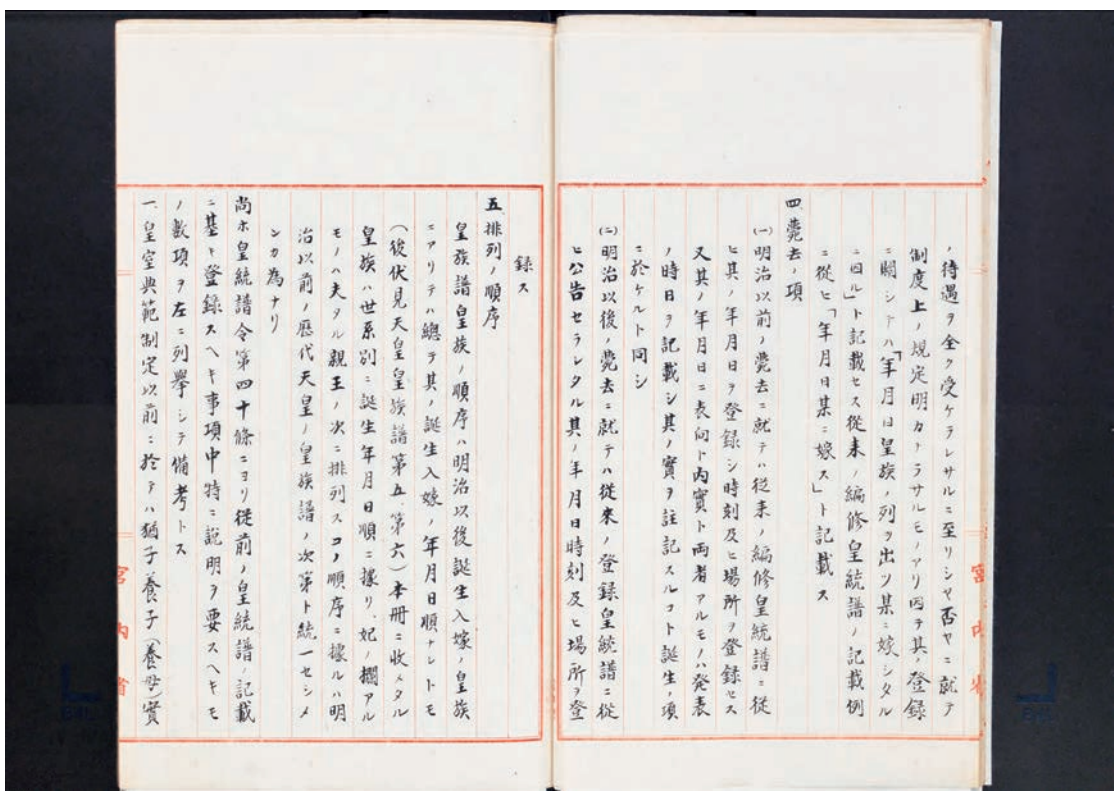 ノ待遇ヲ全ク受ケラレサルニ至リシヤ否ヤニ就テ
制度上ノ規定明カナラサルモノアリ因テ其ノ登録
ニ關シテハ「年月日皇族ノ列ヲ出ツ某ニ嫁シタル
ニ因ル」ト記載セス従来ノ編修皇統譜ノ記載例
ニ從ヒ「年月日某ニ嫁ス」ト記載ス
四、薨去ノ項
(一)明治以前ノ薨去ニ就テハ従来ノ編修皇統譜ニ從
ヒ其ノ年月日ヲ登録シ時刻及ヒ場所ヲ登録セス
又其ノ年月日ニ表向ト内實ト両者アルモノハ発表
ノ時日ヲ記載シ其ノ實ヲ註記スルコト誕生ノ項
ニ於ケルト同シ
(二)明治以後ノ薨去ニ就テハ従來ノ登録皇統譜ニ從
ヒ公告セラレタル其ノ年月日時刻及ヒ場所ヲ登
録ス
五、排列ノ順序
皇族譜皇族ノ順序ハ明治以後誕生入嫁ノ皇族
ニアリテハ總テ其ノ誕生入嫁ノ年月日順ナレトモ
(後伏見天皇皇族譜第五第六)本冊ニ收メタル
皇族ハ世系別ニ誕生年月日順ニ據リ、妃ノ欄アル
モノハ夫タル親王ノ次ニ排列スコノ順序ニ據ルハ明
治以前ノ歴代天皇ノ皇族譜ノ次第ト統一セシメ
ンカ為ナリ
尚ホ皇統譜令第四十條ニヨリ從前ノ皇統譜ノ記載
ニ基キ登録スヘキ事項中特ニ説明ヲ要スヘキモ
ノ數項ヲ左ニ列擧シテ備考トス
一、皇室典範制定以前ニ於テハ猶子養子(養母)實
宮内省
宮内省